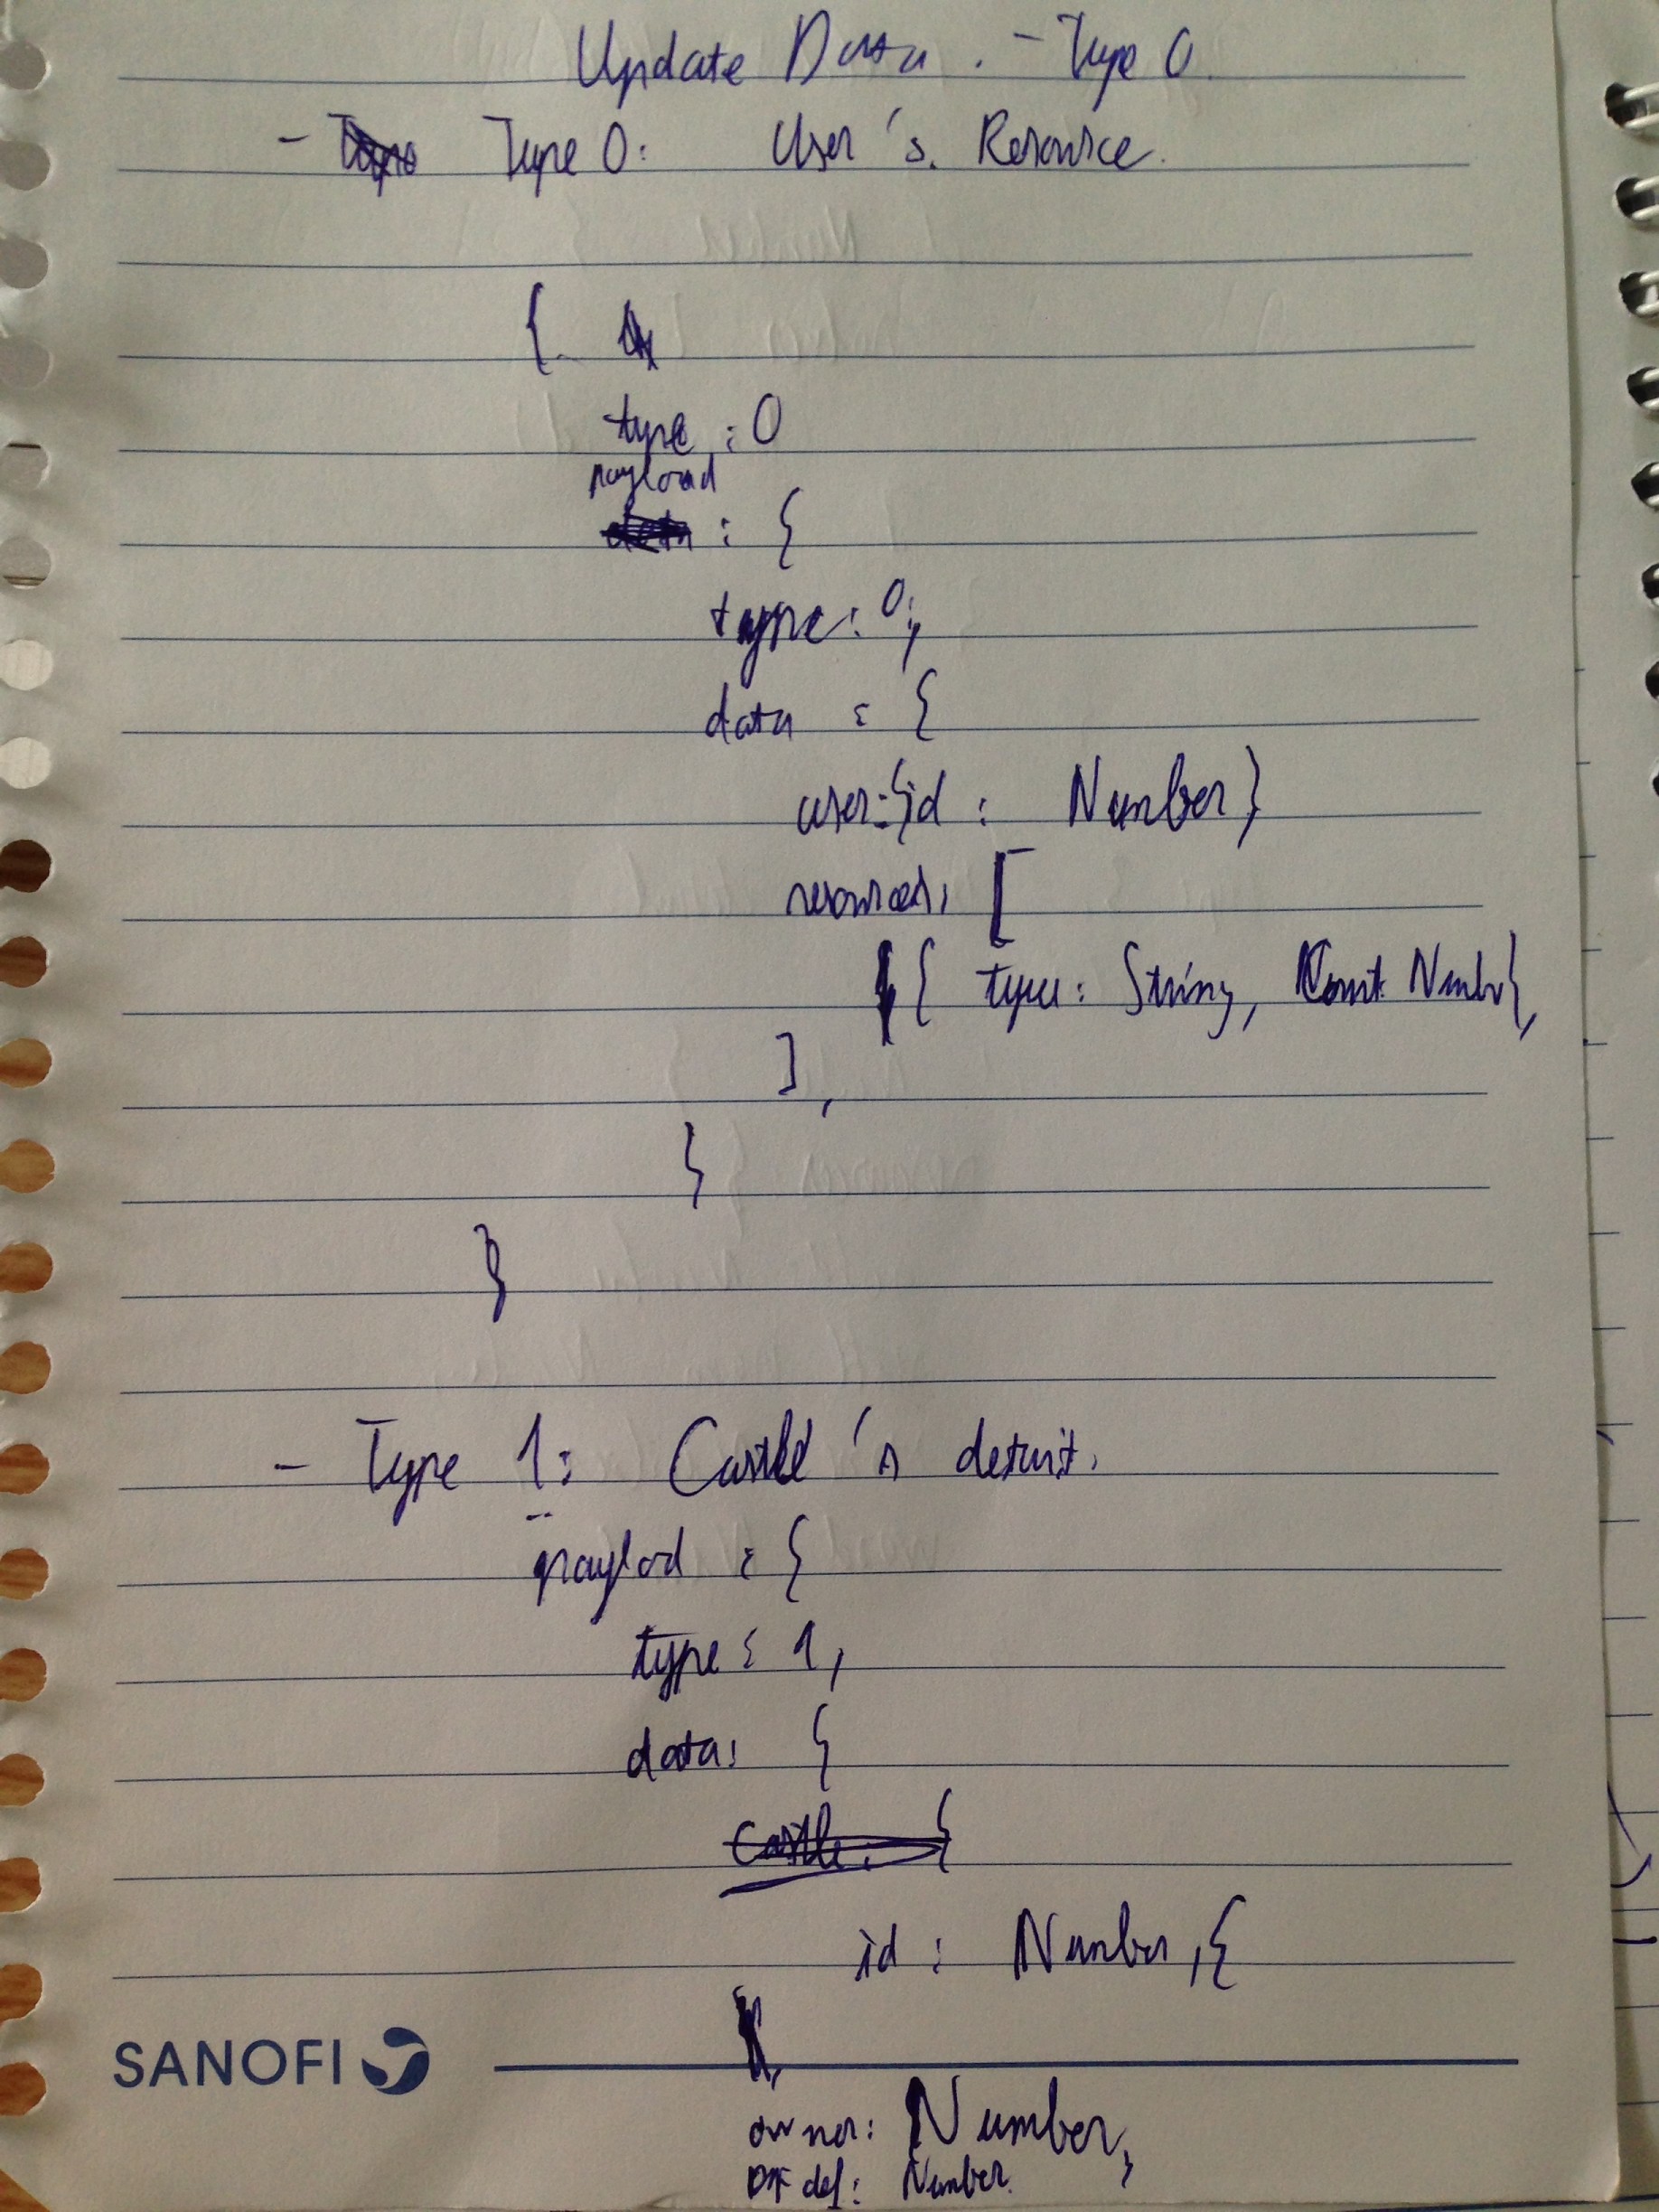 Update Data . - Type 0
- Type 0: User's. Resource.
{
type : 0
payload
: {
type: 0;
data : {
user:{id : Number}
resources: [
{ type: String, Count: Number},
],
}
}
- Type 1: Castle's detait.
paylod : {
type : 1,
data: {
Castle: {
id : Number, {
SANOFI
owner: Number,
def: Number.